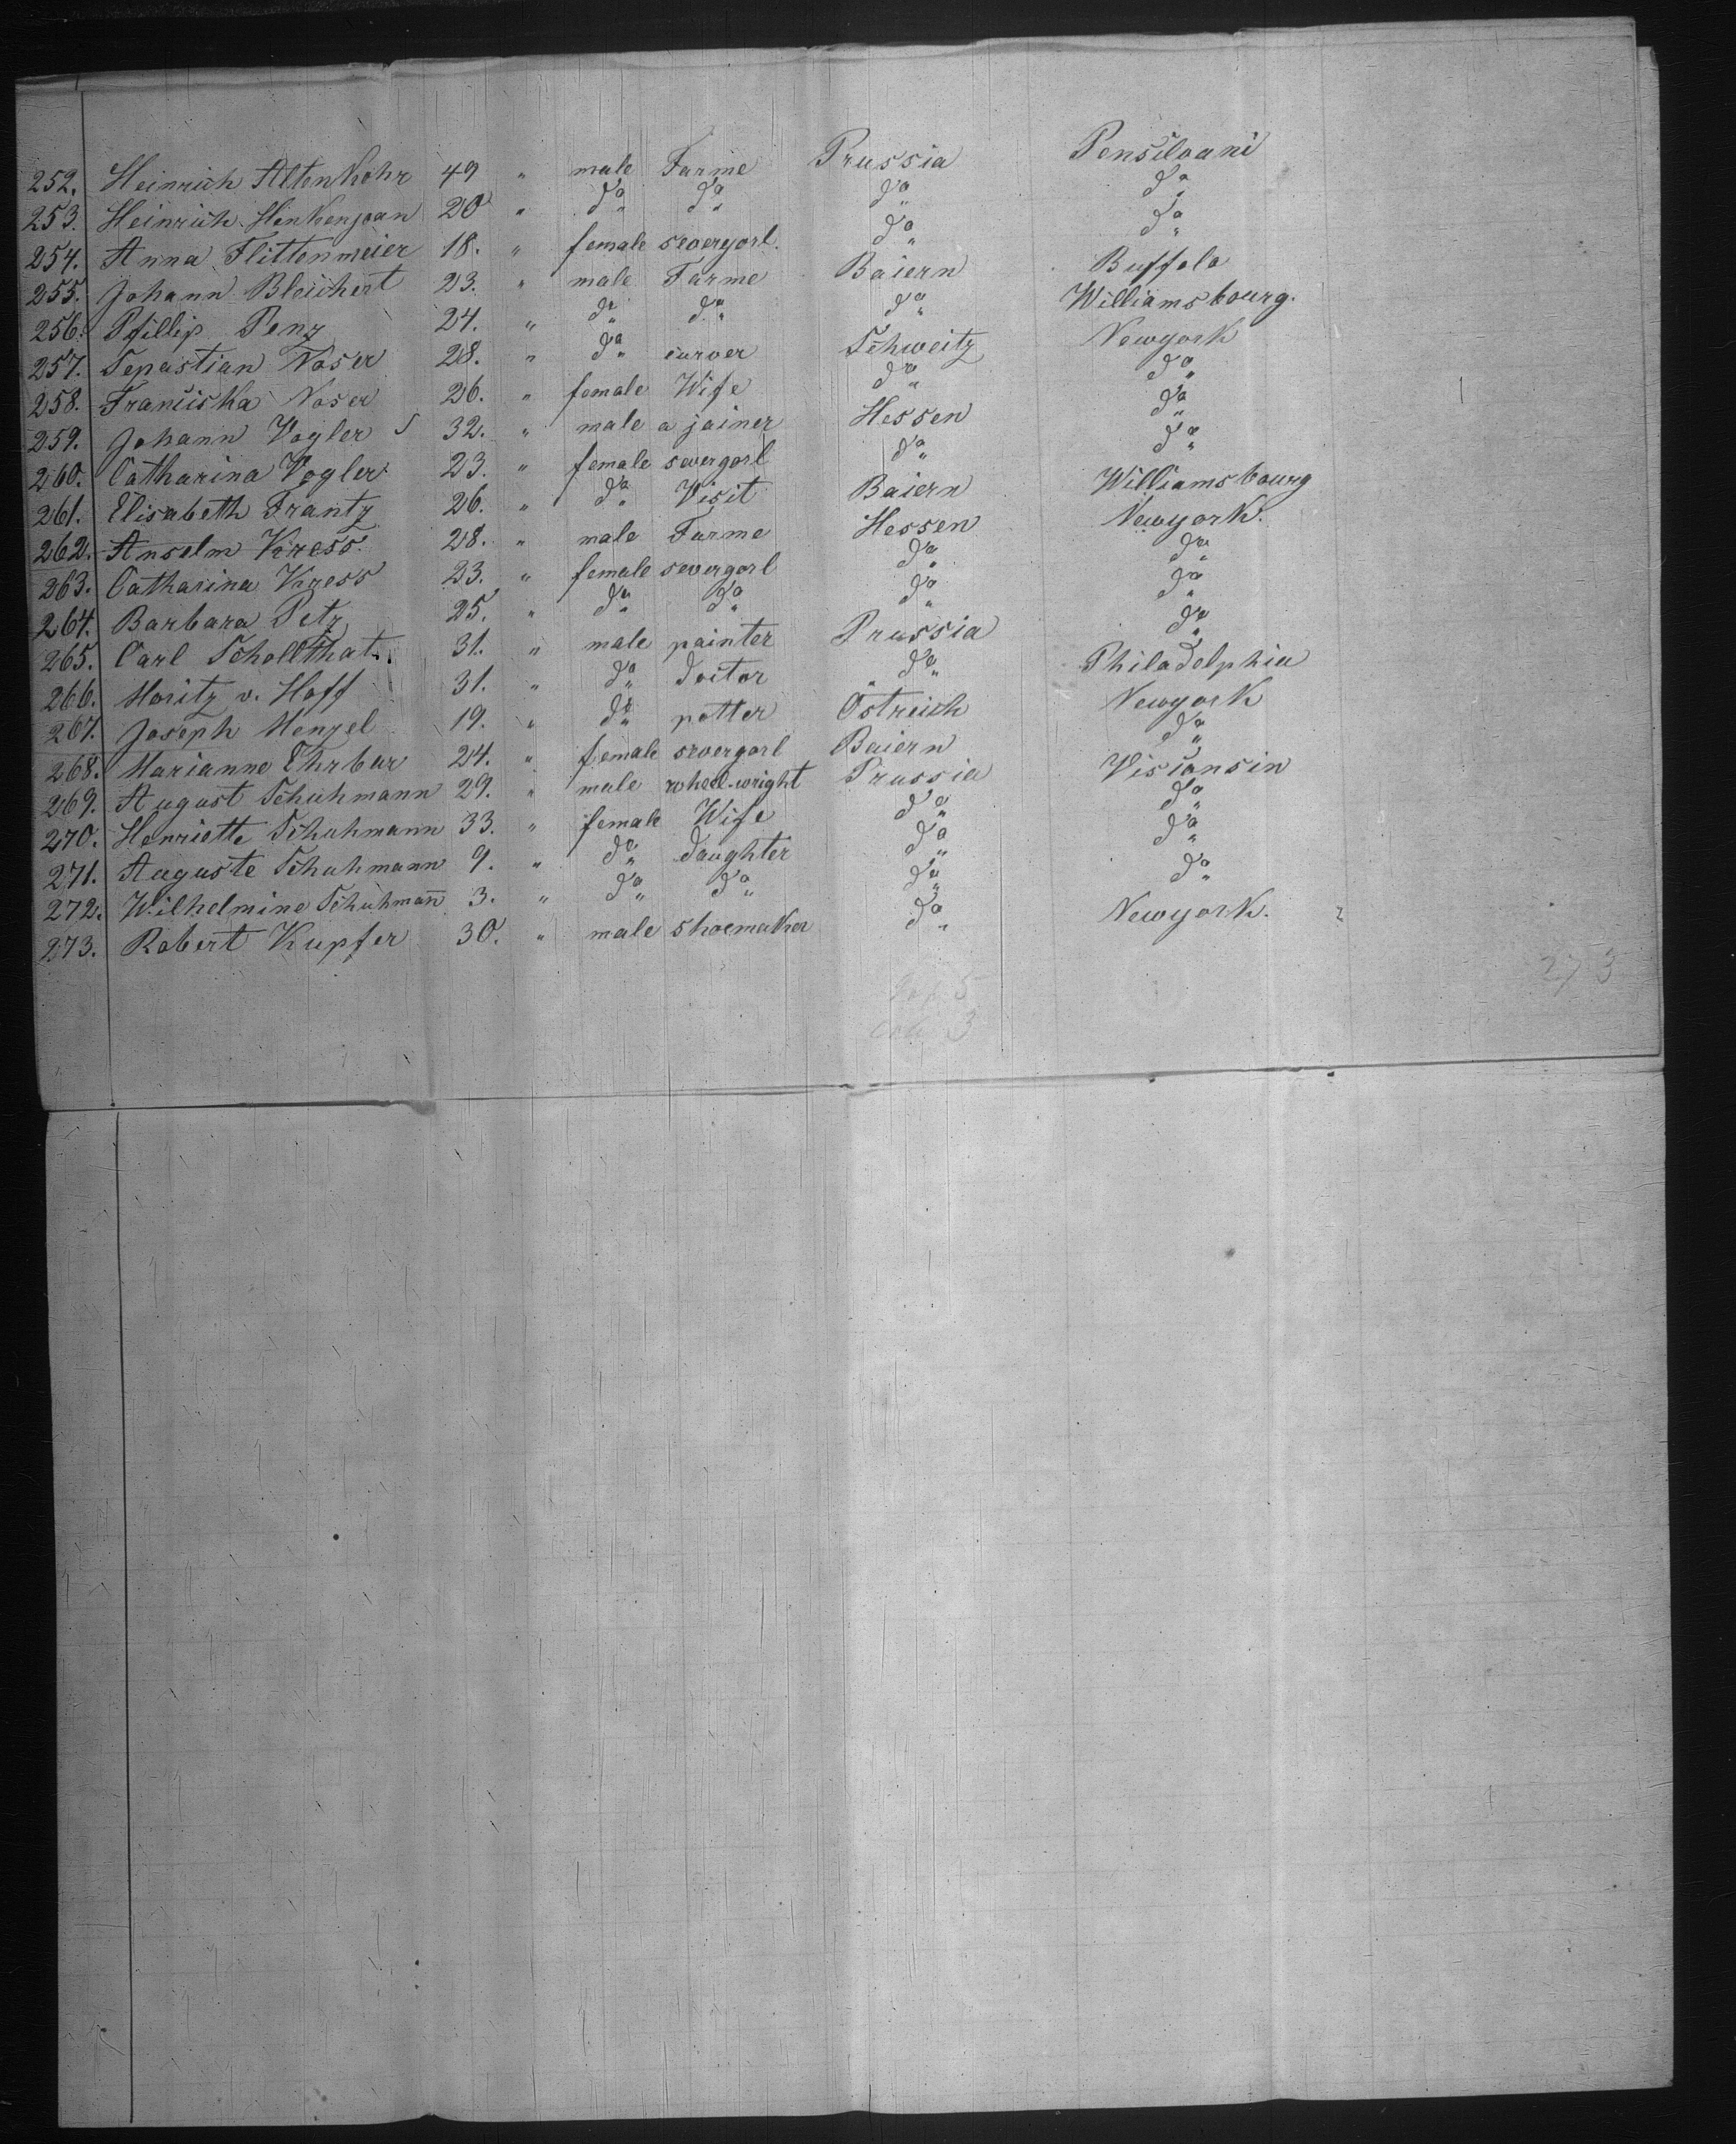 252. Heinrich Altenkohr 49 " male Farme Prussia Pensilvani
253. Heinrich Henkenjoan 20 " do do do do
254. Anna Flittenmeier 18. " female severgorl. do do
255. Johann Bleichert 23. " male Farme Baiern Buffalo
256. Pfillip Penz 24. " do do do Williamsbourg.
257. Sepastian Noser 28. " do curver Schweitz Newyork
258. Franciska Noser 26. " female Wife do do
259. Johann Vogler 32. " male a joiner Hessen do
260. Catharina Vogler 23. " female severgorl do do
261. Elisabeth Frantz 26. " do Visit Baiern Williamsbourg
262. Anselm Kress. 28. " male Farme Hessen Newyork.
263. Catharina Kress 23. " female severgorl do do
264. Barbara Petz 25. " do do do do
265. Carl Schollthat. 31. " male painter Prussia do
266. Moritz v. Hoff 31. " do doctor do Philadelphia
267. Joseph Menzel 19. " do potter Ostreich Newyork
268. Marianne Ehrbar 24. " female severgorl Baiern do
269. August Schuhmann 29. " male wheel-wright Prussia Visconsin
270. Henriette Schuhmann 33. " female Wife do do
271. Auguste Schuhmann 9. " do daughter do do
272. Wilhelmine Schuhmann̅ 3. " do do do do
273. Robert Kupfer 30. " male shoemaker do Newyork.
273